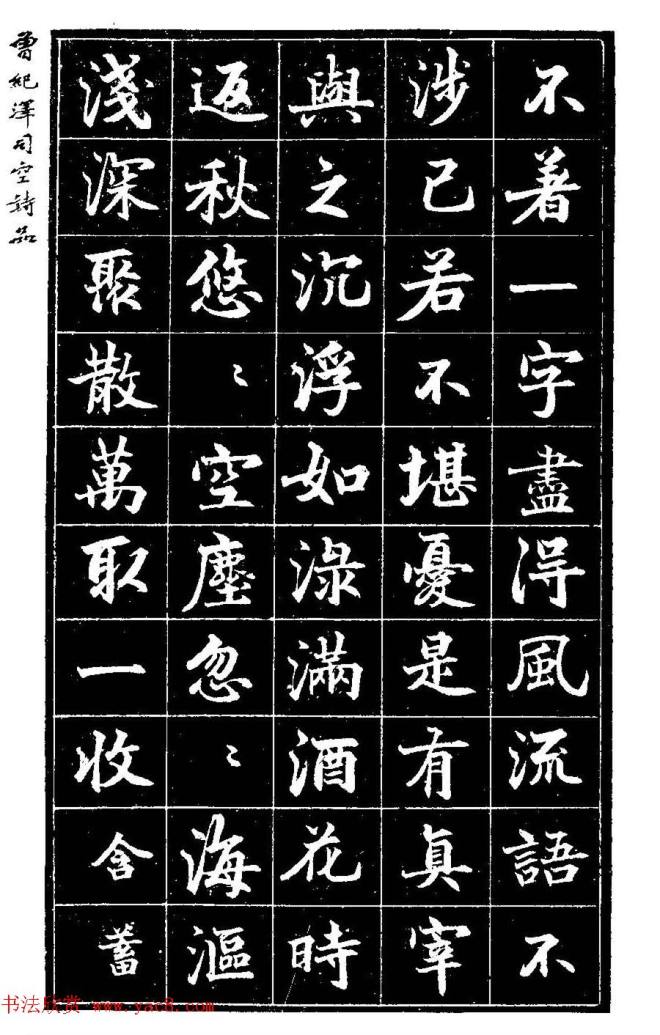 不著一字盡得風流語不
涉已若不堪憂是有眞宰
與之沉浮如淥滿酒花時
返秋悠〻空塵忽〻海漚
淺深聚散萬取一收含蓄
曾紀澤司空詩品
书法欣赏 www.yac8.com